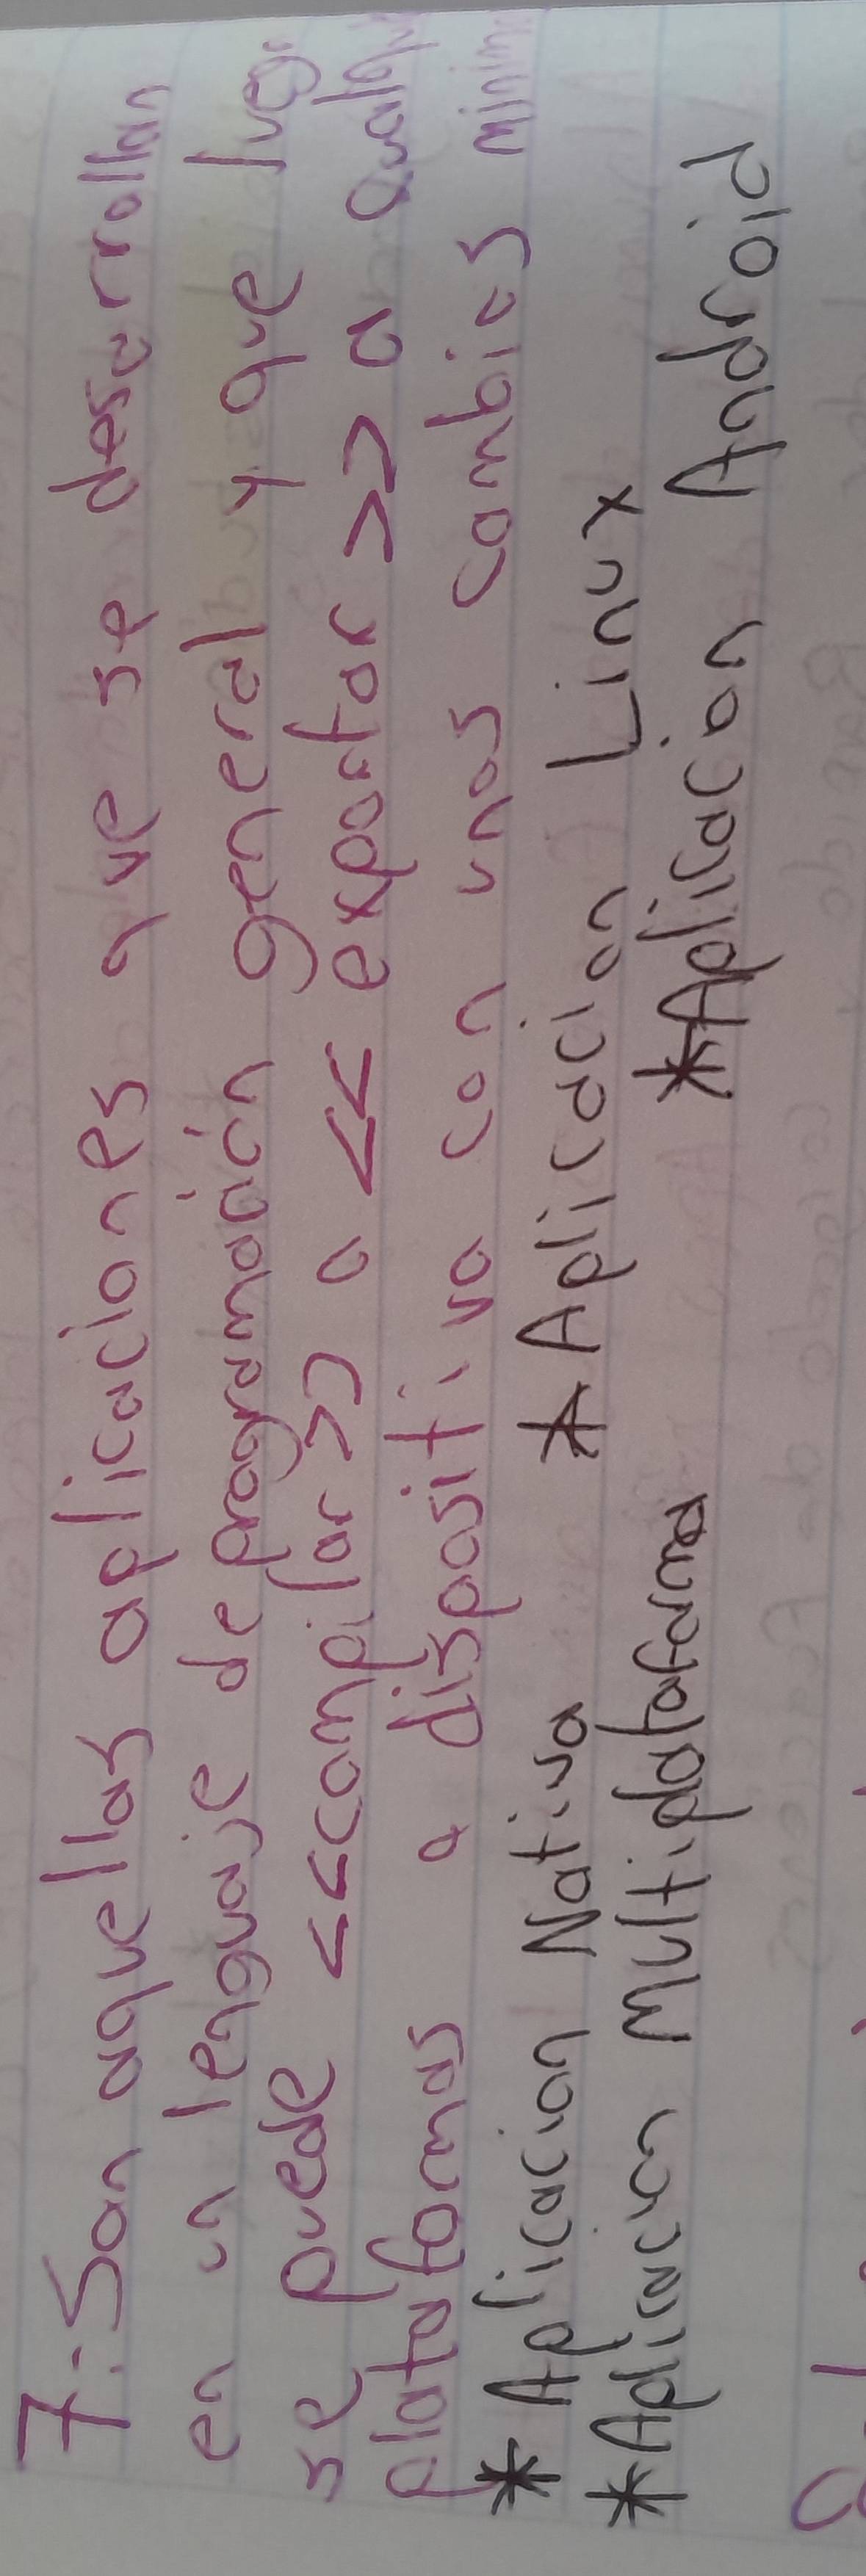 7:- Son aquellas aplicaciones que se desarrollan
en un lenguaje de programación general y que
se puede <<compilar>> o <<exportar>> a
plataformas o dispositivo con unos cambios
* Aplicacion Nativa * Aplicación Linux
*Aplicación Multiplataforma *Aplicacon